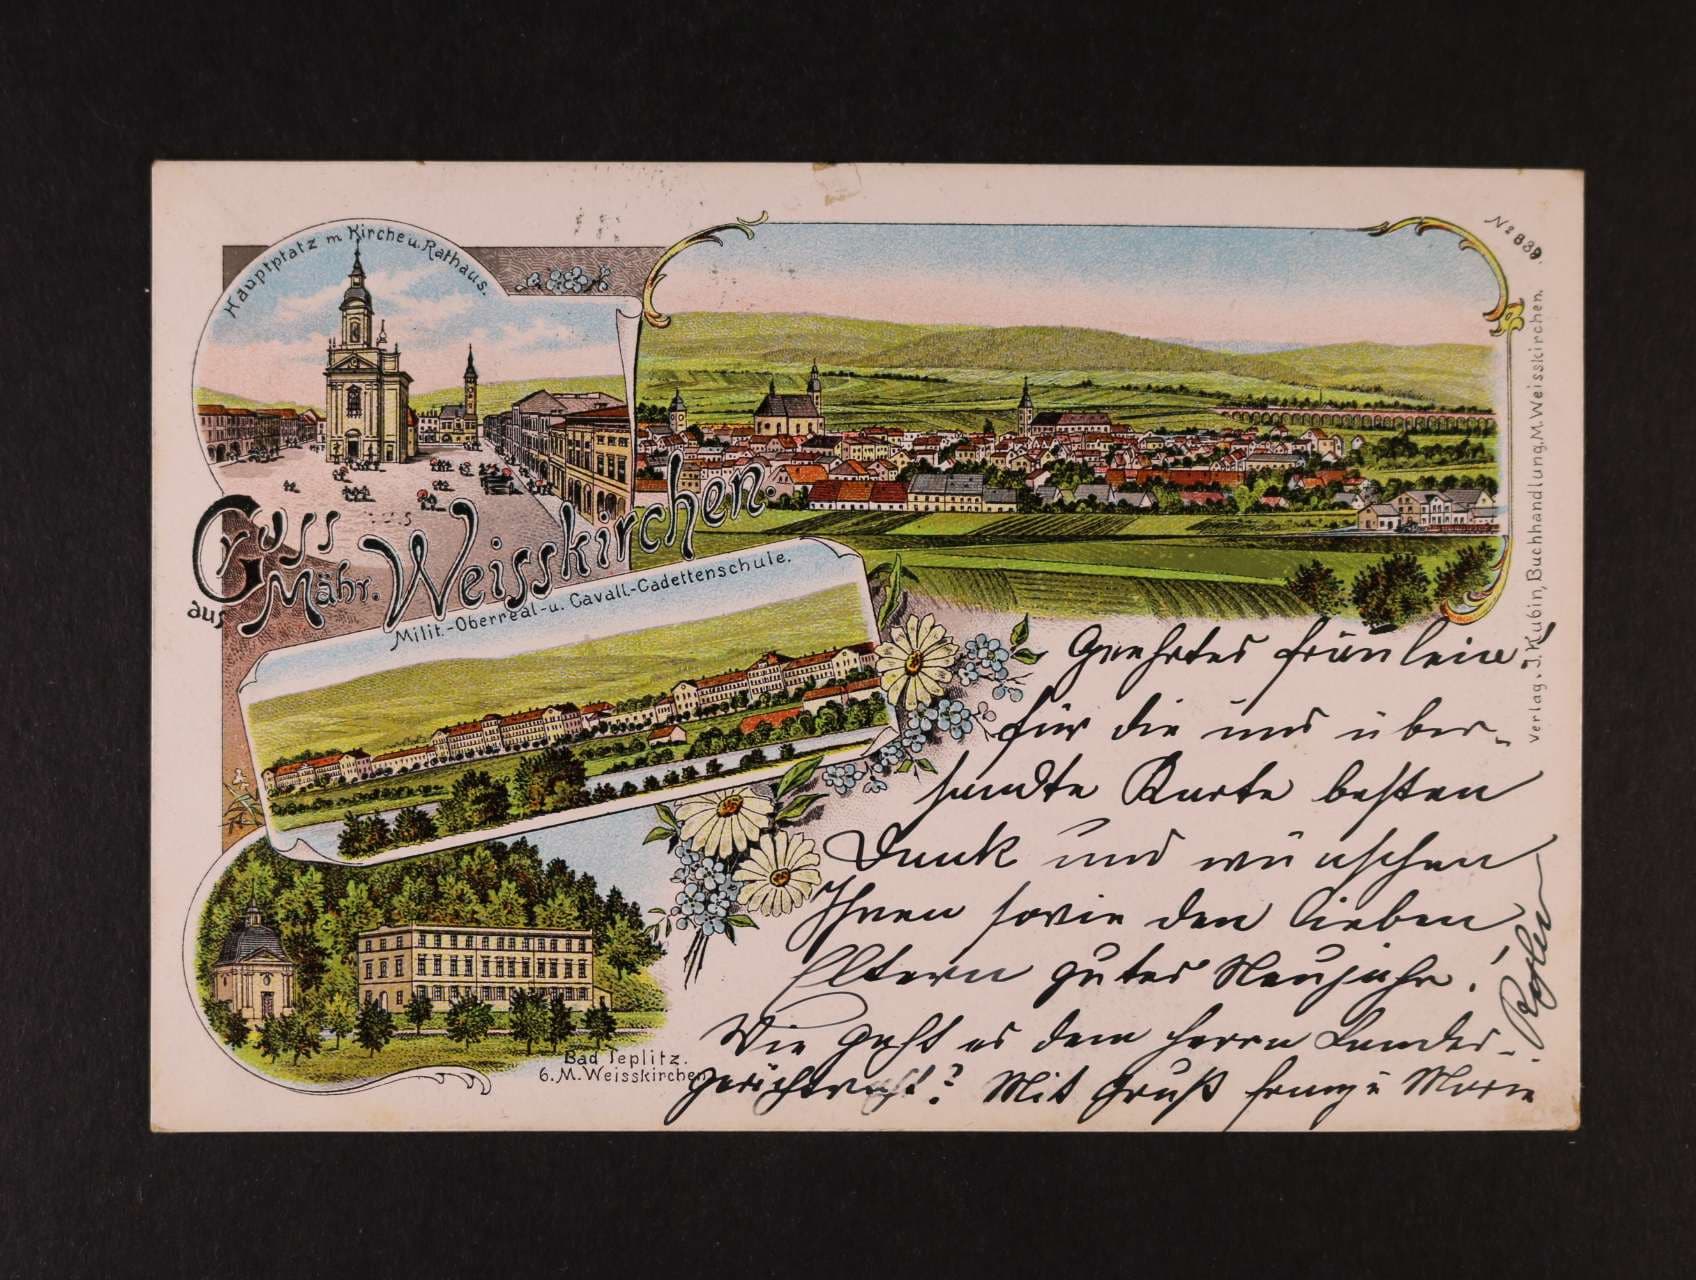 Hauptplatz m Kirche u. Rathaus.
No 839.
Gruss
aus Mähr. Weisskirchen.
Milit.-Oberreal-u. Cavall.-Cadettenschule.
Bad Teplitz.
b. M. Weisskirchen
Verlag v. J. Kubin, Buchhandlung, M. Weisskirchen.
Geehrtes Fräulein
für die uns über-
sandte Karte besten
Dank und wünschen
Ihnen sowie den lieben
Eltern gutes Neujahr!
Wie geht es dem Herrn Landes-
gerichtsrath? Mit Gruß Franz u Marie